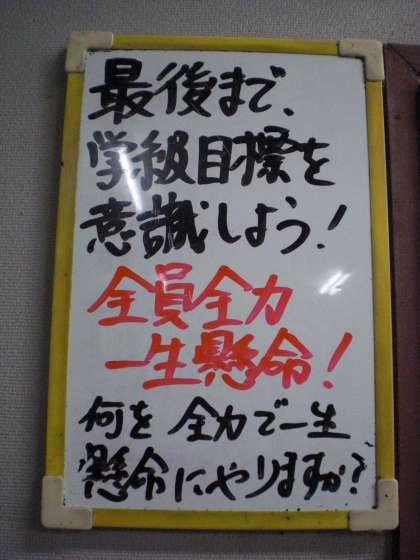 最後まで、
学級目標を
意識しよう!
全員全力
一生懸命!
何を全力で一生
懸命にやりますか?